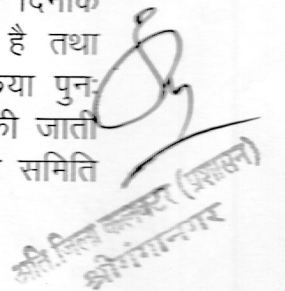 दिनांक
है तथा
पुन:
की जाती
समिति
अति.जिला कलक्टर (प्रशासन)
श्रीगंगानगर